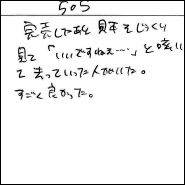 505
完売したあと見本をじっくり
見て「いいですねぇ…」と呟い
て去っていった人がいた。
すごく良かった。